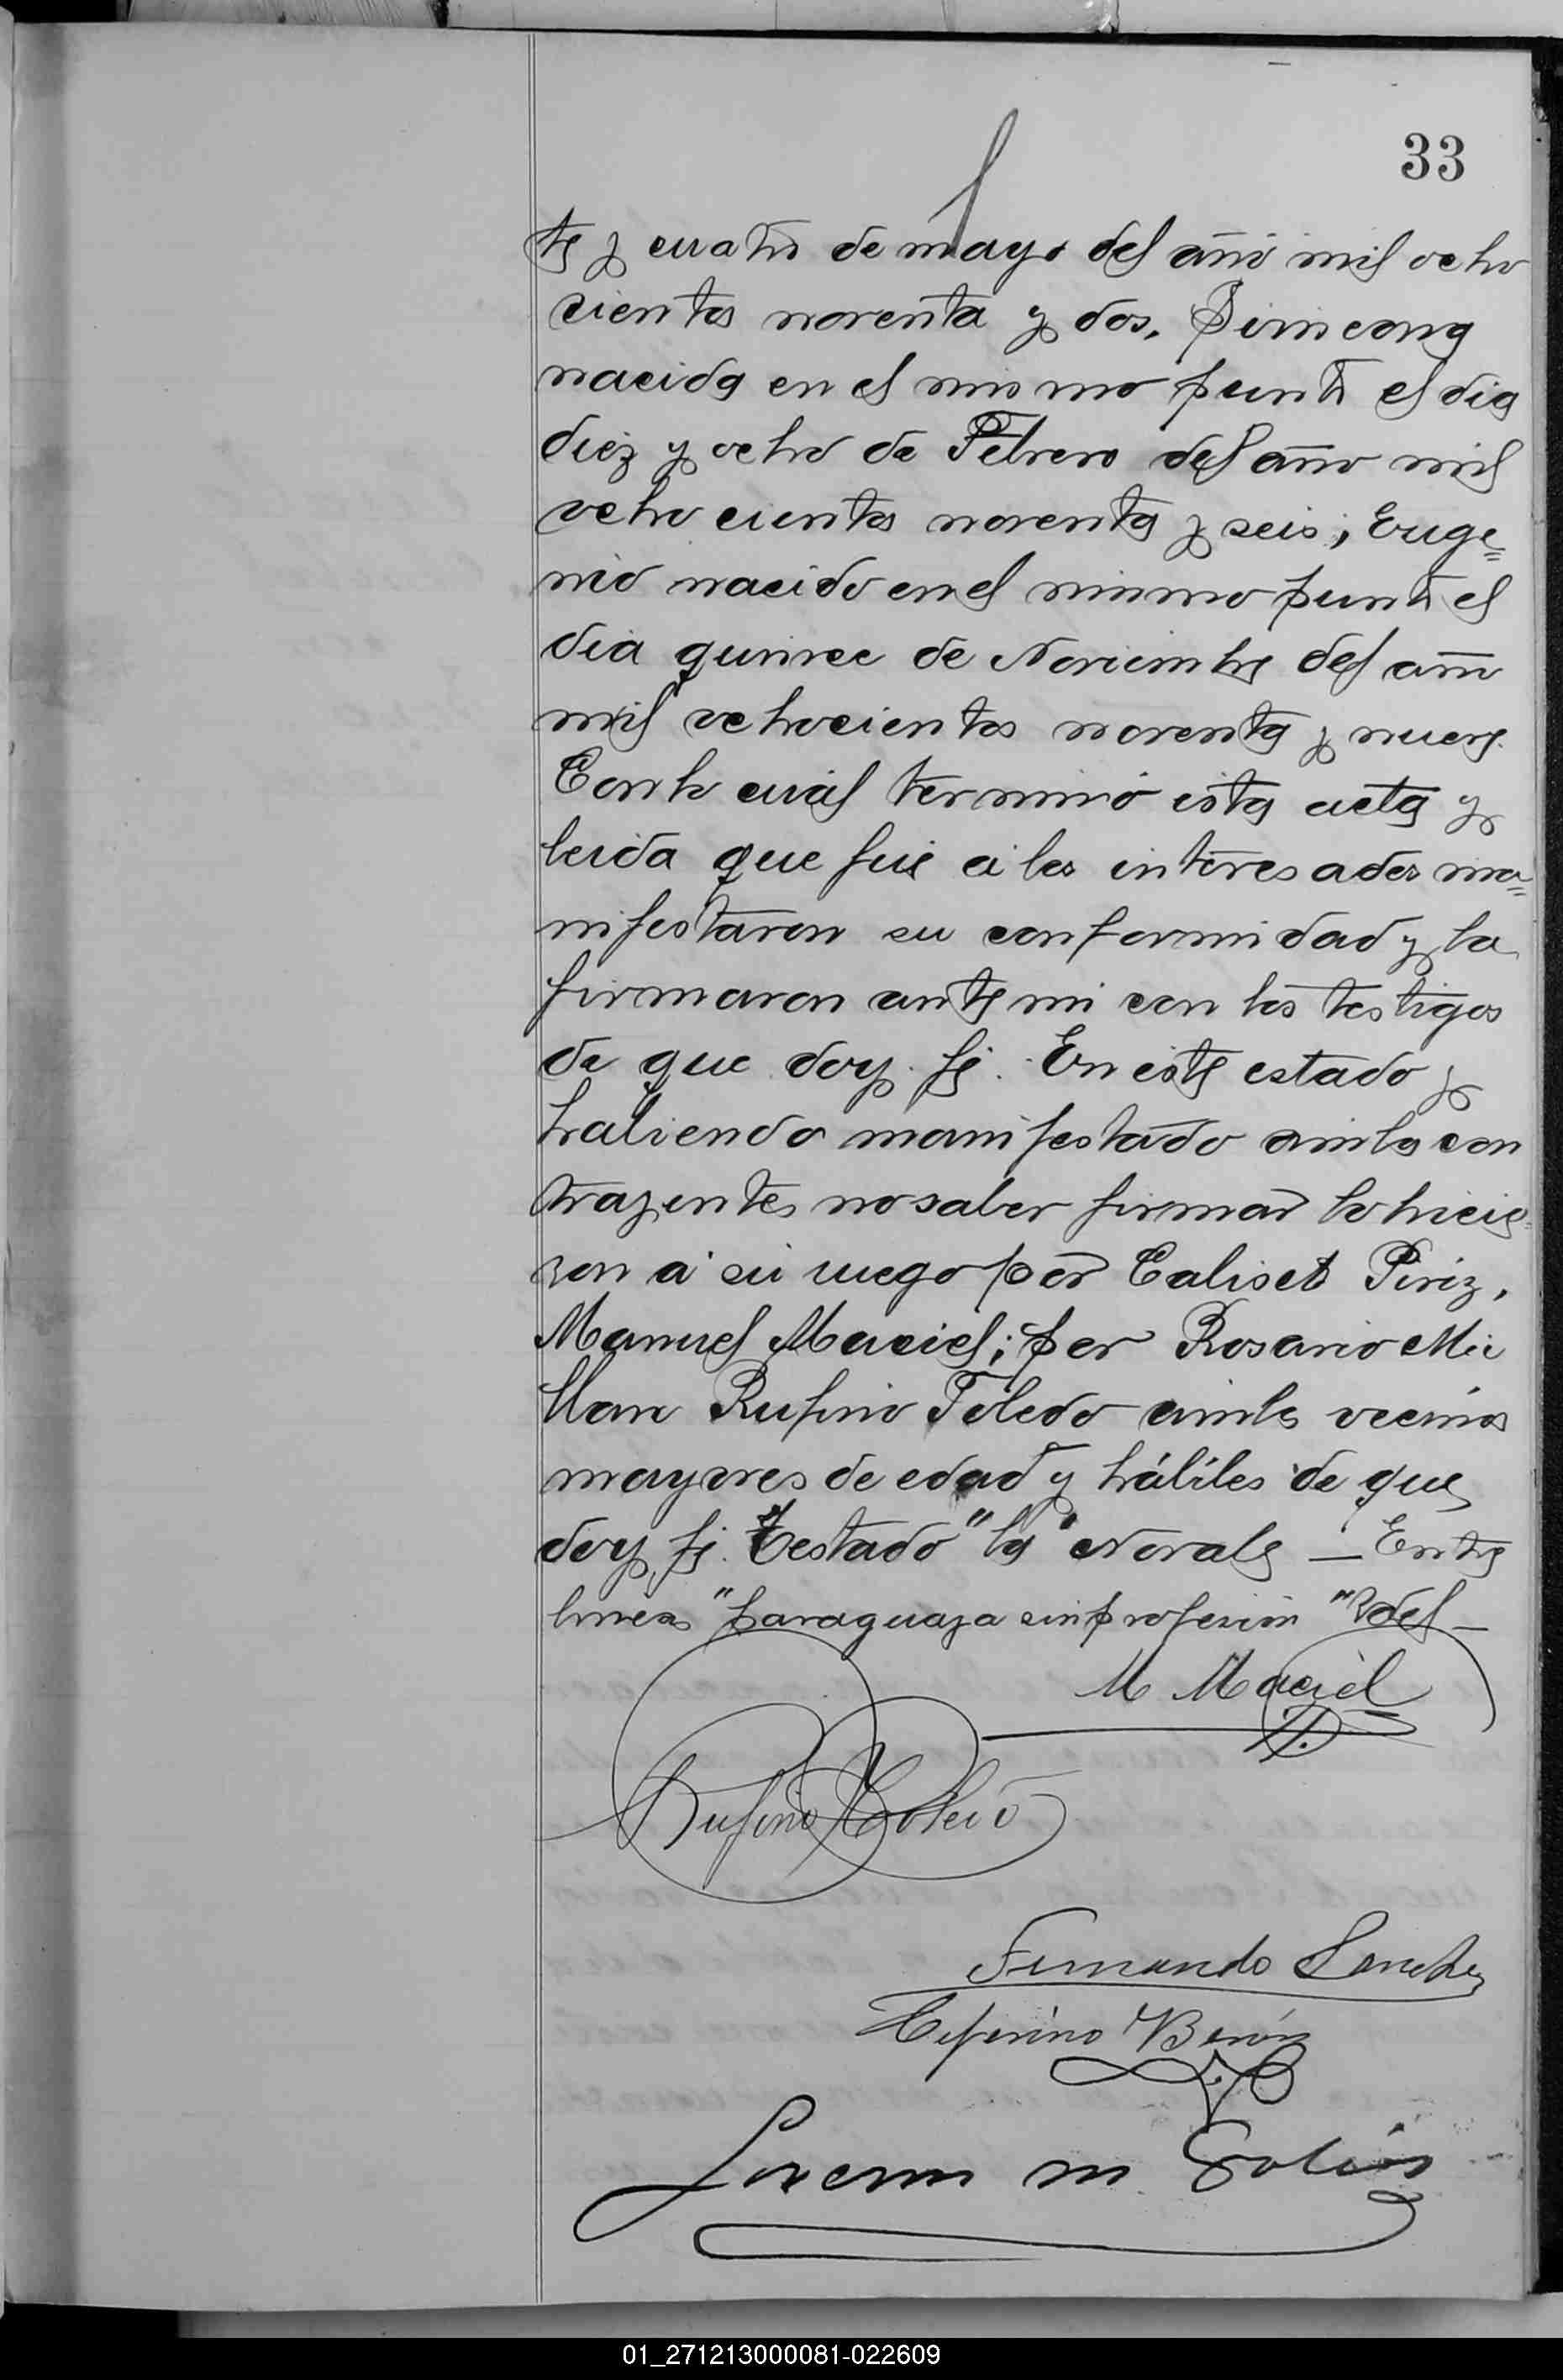 33
te y cuatro de mayo del año mil ocho
cientos noventa y dos,
nacida en el mismo punto el dia
diez y ocho de Febrero del año mil
ocho cientos noventa y seis; Euge=
nio nacido en el mismo punto el
dia quince de Noviembre del año
mil ochocientos noventa y nueve.
Con lo cuál terminó esta acta y
leida que fué á los interesados ma=
nifestaron su conformidad y la
firmaron ante mi con los testigos
de que doy fé. En este estado y
habiendo manifestado ambos con
trayentes no saber firmar lo hicie=
ron á su ruego por Calisto Piriz,
Manuel Maciel; por Rosario Mi
llan Rufino Toledo ambos vecinos
mayores de edad y hábiles de que
doy fé. Testado "la" No vale — Entre
lineas "paraguaya sin profesion"
M Maciel
Rufino Toledo
Fernando Sanchez
Ceferino Barón
m.
01_271213000081-022609